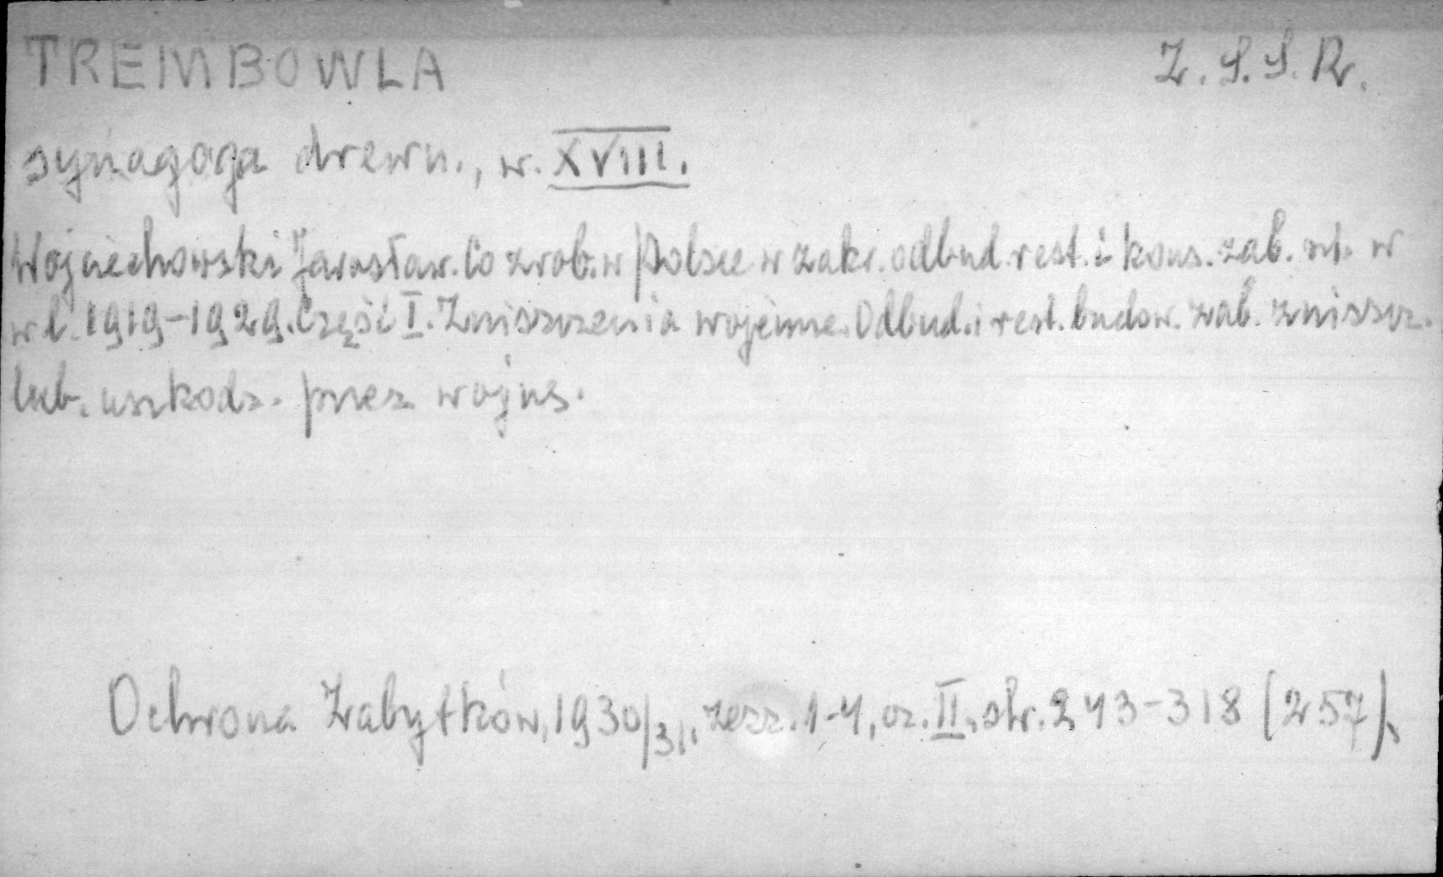 TREMBOWLA Z.S.S.R.
synagoga drewn., w. XVIII.
Wojciechowski Jarosław. Co zrob. w Polsce w zakr. odbud. rest. i kons. zab. szt. w
w l. 1919-1929. Część I. Zniszczenia wojenne. Odbud. i rest. budow. zab. zniszcz.
lub. uszkodz. przez wojnę.
Ochrona Zabytków, 1930/31, zesz. 1-4, cz. II, str. 243-318 (257).